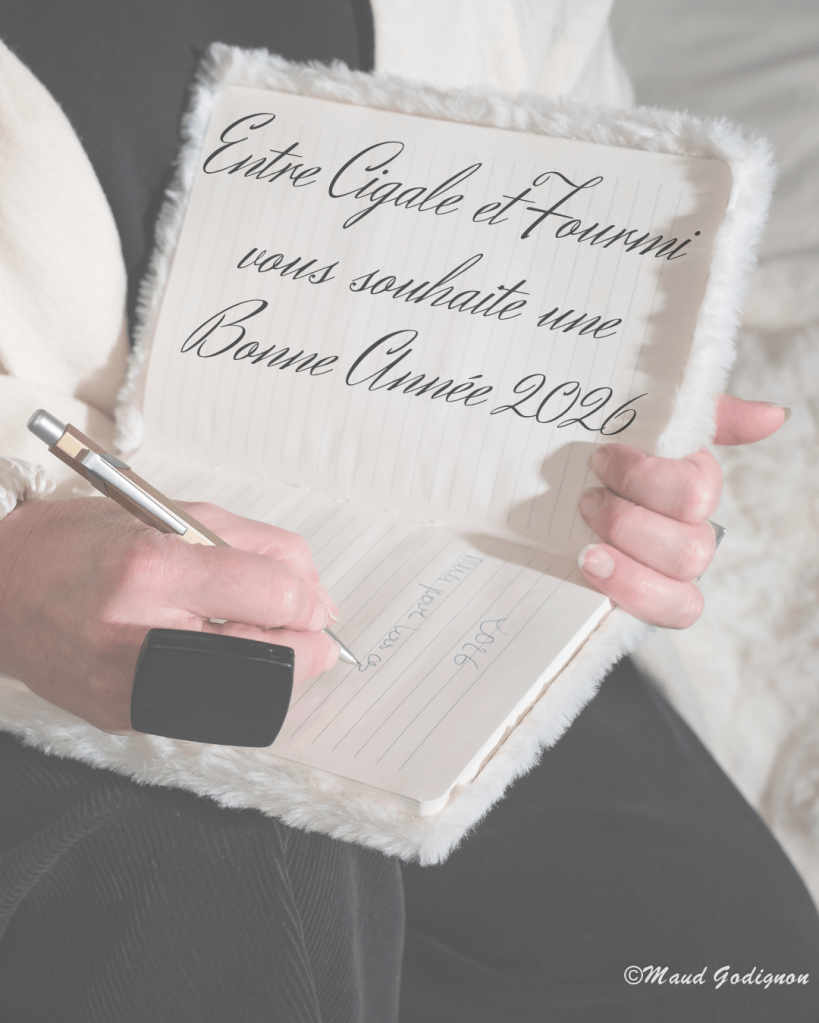 Entre Cigale et Fourmi
vous souhaite une
Bonne Année 2026
2026
©Maud Godignon